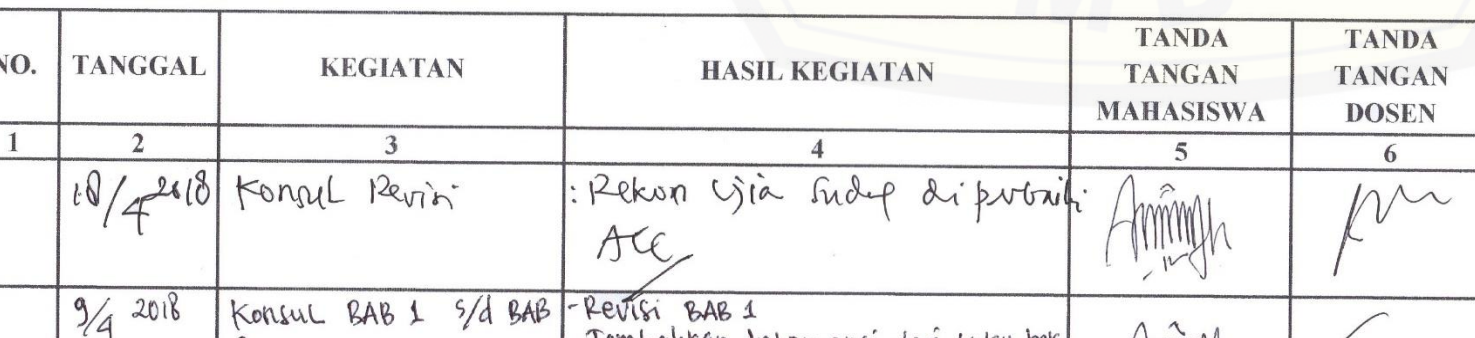 NO. TANGGAL KEGIATAN HASIL KEGIATAN TANDA TANGAN MAHASISWA TANDA TANGAN DOSEN
1 2 3 4 5 6
18/4 2018 Konsul Revisi : Rekon Ujia sudah diperbaiki
ACC
9/4 2018 Konsul BAB 1 s/d BAB -Revisi BAB 1